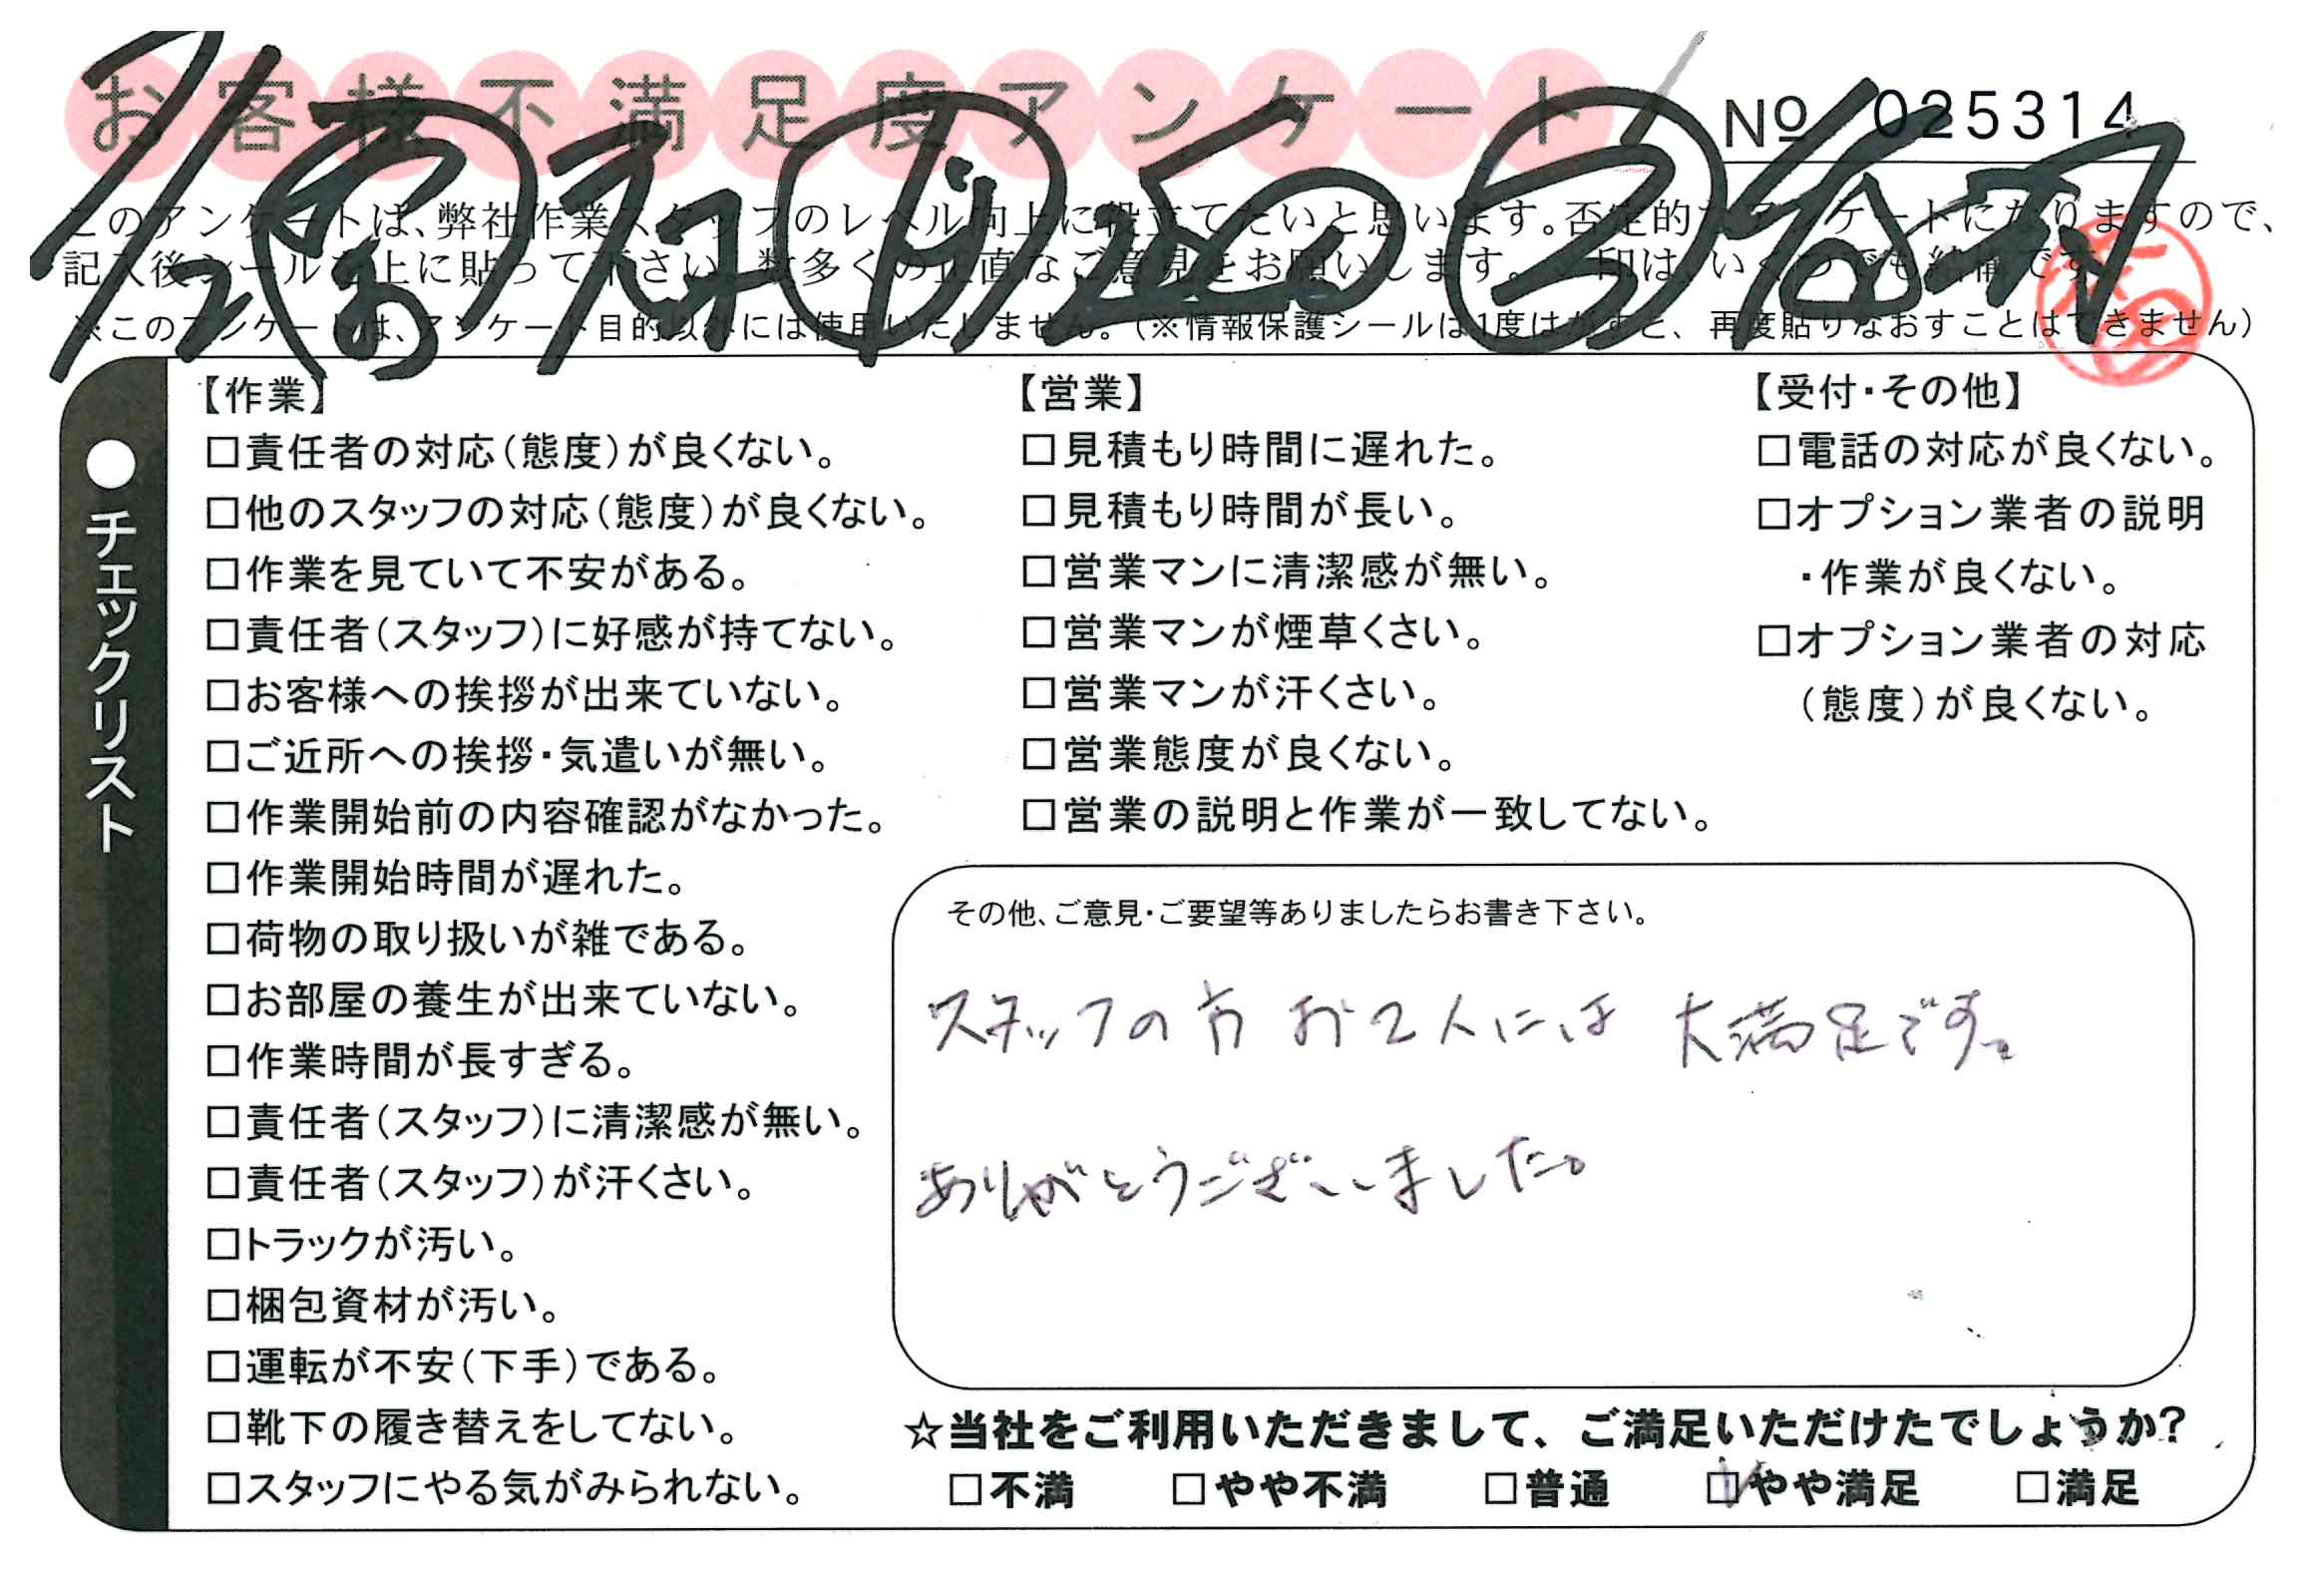 お客様不満足度アンケート
№ 025314
このアンケートは、弊社作業スタッフのレベル向上に役立てたいと思います。否定的なアンケートになりますので、
記入後シールを上に貼って下さい。数多くの正直なご意見をお願いします。レ印は、いくつでも結構です。
※このアンケートは、アンケート目的以外には使用いたしません。(※情報保護シールは1度はがすと、再度貼りなおすことはできません)
●チェックリスト
【作業】
□責任者の対応(態度)が良くない。
□他のスタッフの対応(態度)が良くない。
□作業を見ていて不安がある。
□責任者(スタッフ)に好感が持てない。
□お客様への挨拶が出来ていない。
□ご近所への挨拶・気遣いが無い。
□作業開始前の内容確認がなかった。
□作業開始時間が遅れた。
□荷物の取り扱いが雑である。
□お部屋の養生が出来ていない。
□作業時間が長すぎる。
□責任者(スタッフ)に清潔感が無い。
□責任者(スタッフ)が汗くさい。
□トラックが汚い。
□梱包資材が汚い。
□運転が不安(下手)である。
□靴下の履き替えをしてない。
□スタッフにやる気がみられない。
【営業】
□見積もり時間に遅れた。
□見積もり時間が長い。
□営業マンに清潔感が無い。
□営業マンが煙草くさい。
□営業マンが汗くさい。
□営業態度が良くない。
□営業の説明と作業が一致してない。
【受付・その他】
□電話の対応が良くない。
□オプション業者の説明
・作業が良くない。
□オプション業者の対応
(態度)が良くない。
その他、ご意見・ご要望等ありましたらお書き下さい。
スタッフの方お2人には大満足です。
ありがとうございました。
☆当社をご利用いただきまして、ご満足いただけたでしょうか?
□不満 □やや不満 □普通 □やや満足 □満足